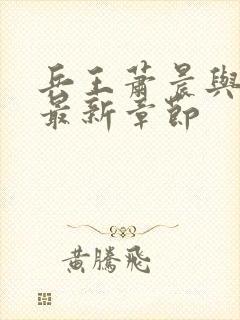 兵王蕭晨與
最新章節
黃騰飛